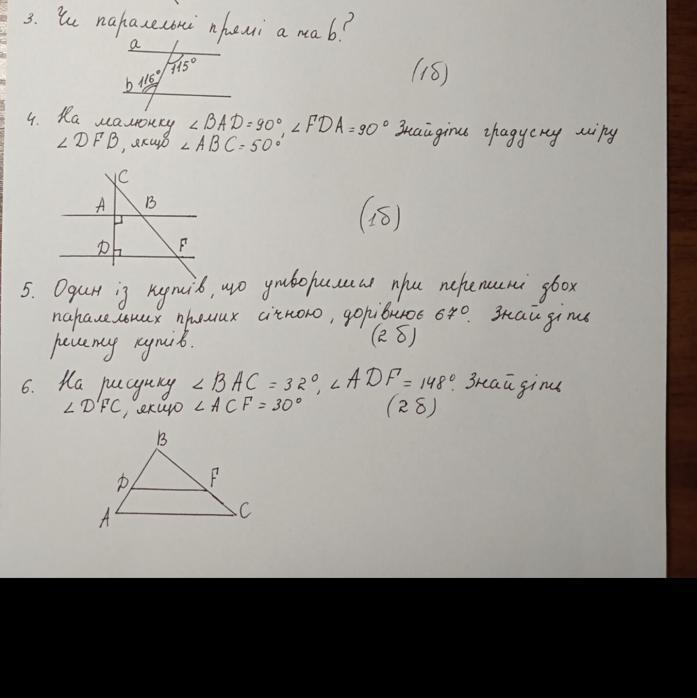 3. Чи паралельні прямі a та b?
a
115°
b 116°
(1б)
4. На малюнку ∠BAD=90°, ∠FDA=90° Знайдіть градусну міру
∠DFB, якщо ∠ABC=50°
C
A B
(1б)
D F
5. Один із кутів, що утворилися при перетині двох
паралельних прямих січною, дорівнює 67°. Знайдіть
решту кутів. (2 б)
6. На рисунку ∠BAC=32°, ∠ADF=148°. Знайдіть
∠DFC, якщо ∠ACF=30° (2 б)
B
D F
A C